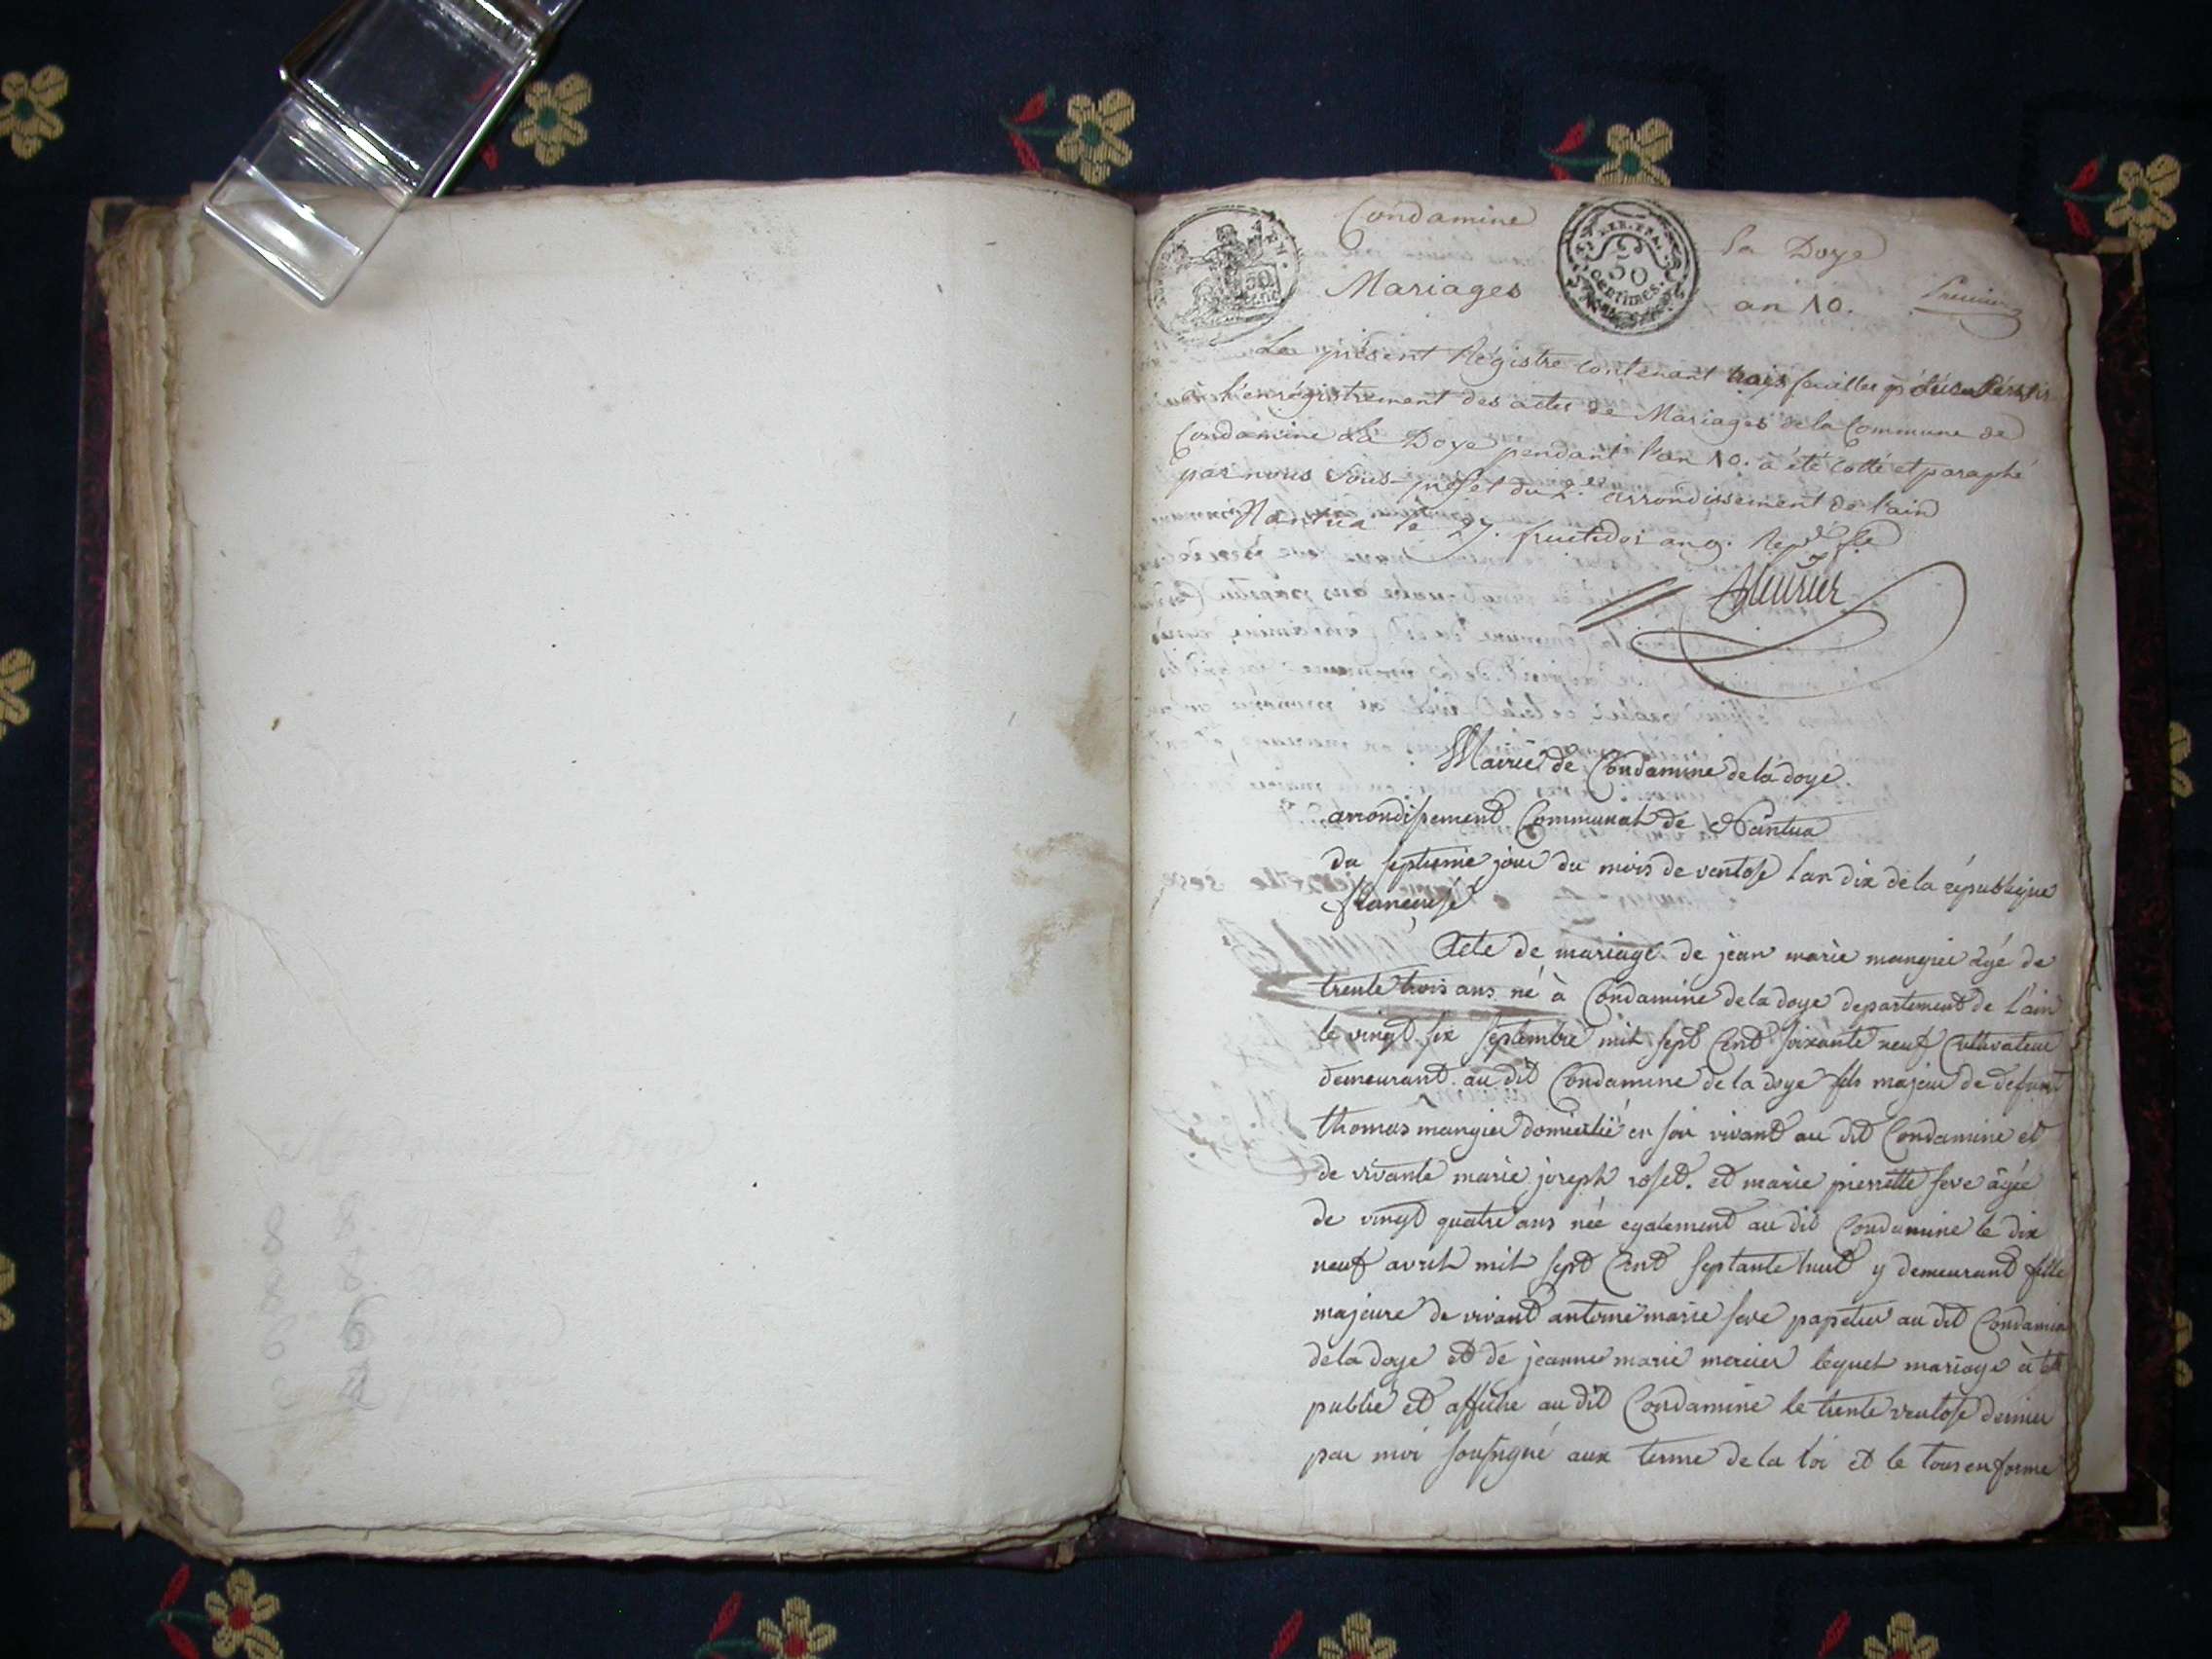 Condamine
la Doye
Mariages
an 10.
Premier
50
50
CENTIMES
Le présent Régistre contenant trois feuilles
l'enrégistrement des actes de Mariages de la Commune de
Condamine La Doye pendant l'an 10. a été cotté et paraphé
par nous Sous-préfet du 2.e arrondissement de l'ain
Nantua le 27. fructidor an 9. Rep.
Mairie de Condamine de la doye.
arrondissement Communal de Nantua
du septieme jour du mois de ventose l'an dix de la république
francaise
Acte de mariage de jean marie mangier agé de
trente trois ans né à Condamine de la doye departement de l'ain
le vingt six Septembre mil sept Cent soixante neuf Cultivateur
demeurant au dit Condamine de la doye fils majeur de defunt
thomas mangier domicilié en son vivant au dit Condamine et
de vivante marie joseph roset. et marie pierrette seve âgée
de vingt quatre ans née egalement au dit Condamine le dix
neuf avril mil sept Cent septante huit y demeurant fille
majeure de vivant antoine marie seve papetier au dit Condamine
de la doye et de jeanne marie mercier lequel mariage à été
publié et affiché au dit Condamine le trente ventose dernier
par moi soussigné aux terme de la loi et le tous en forme